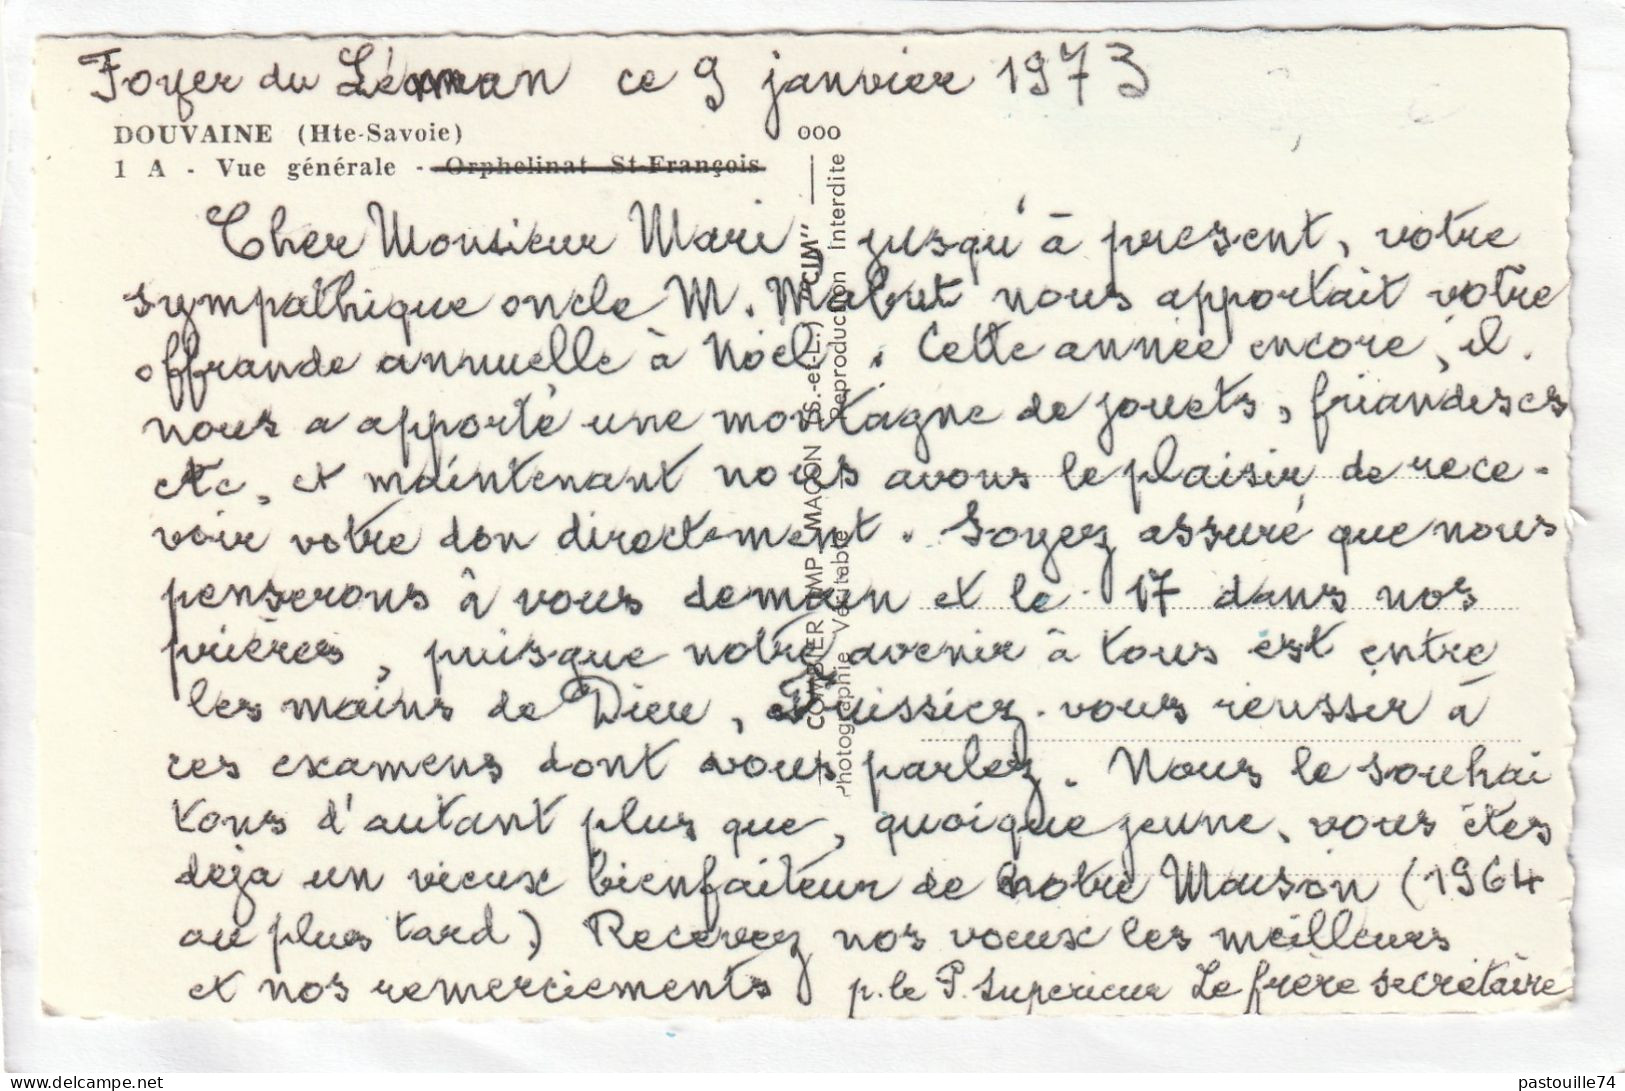 Foyer du Léman ce 9 janvier 1973
DOUVAINE (Hte-Savoie)
ooo
1 A - Vue générale - Orphelinat St-François
Cher Monsieur Mari, jusqu'à présent, votre
sympathique oncle M. Mabut nous apportait votre
offrande annuelle à Noël. Cette année encore, il
nous a apporté une montagne de jouets, friandises
etc, et maintenant nous avons le plaisir de rece-
voir votre don directement. Soyez assuré que nous
penserons à vous demain et le 17 dans nos
prières, puisque notre avenir à tous est entre
les mains de Dieu, Puissiez-vous réussir à
ces examens dont vous parlez. Nous le souhai
tons d'autant plus que, quoique jeune, vous êtes
déja un vieux bienfaiteur de notre Maison (1964
au plus tard) Recevez nos voeux les meilleurs
et nos remerciements p. le P. Supérieur Le frère secrétaire
COMBIER IMP. MACON (S.-et-L.) "CIM"
Photographie Véritable Reproduction Interdite
delcampe.net
pastouille74